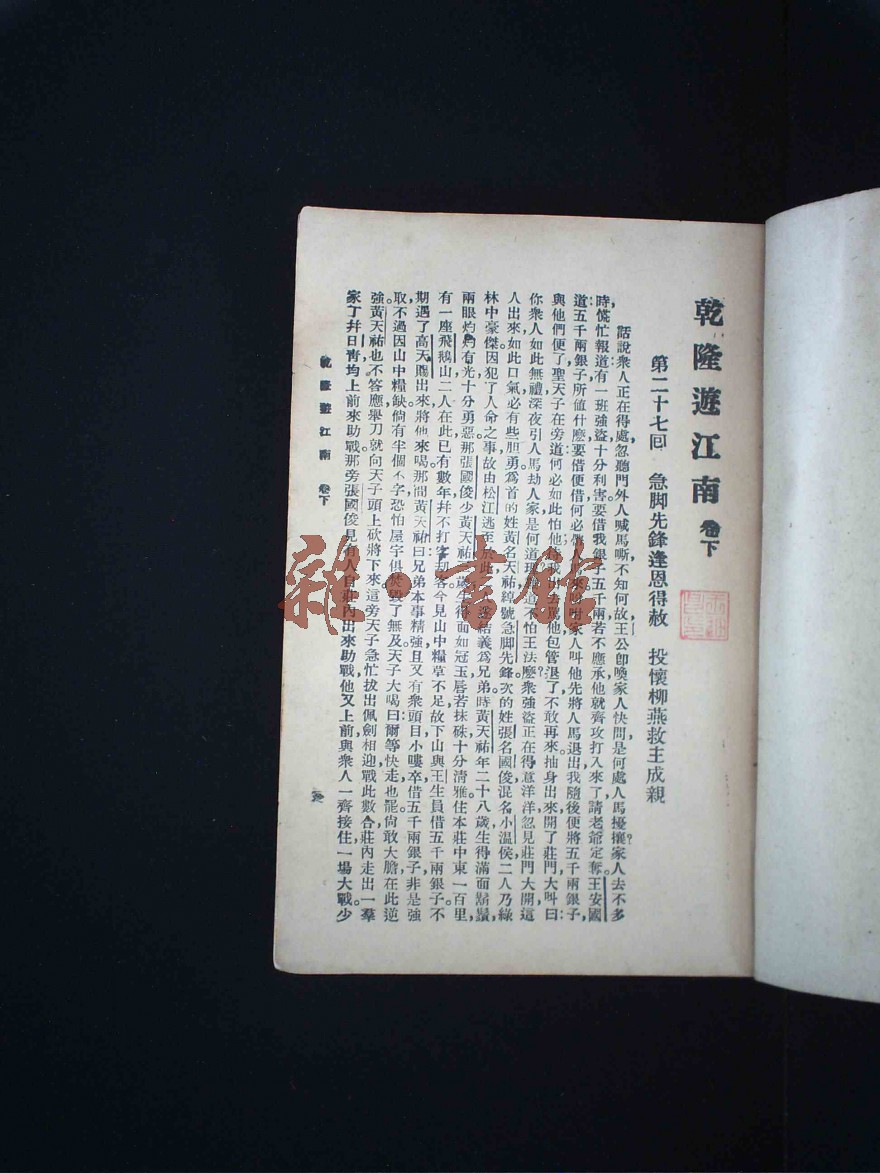 乾隆遊江南 卷下
第二十七回 急脚先鋒逢恩得赦 投懷柳燕救主成親
話說衆人正在得處忽聽門外人喊馬嘶不知何故王公卽喚家人快問是何處人馬擾攘家人去不多
時慌忙報道有一班強盜十分利害要借我銀子五千兩若不應承他就齊攻打入來了請老爺定奪王安國
道五千兩銀子所値什麽要借便借何必 家人叫他先將人馬退出我隨後便將五千兩銀子
與他們便了聖天子在旁道何必如此怕他 他包管退了不敢再來抽身出來開了莊門大叫曰
你衆人如此無禮深夜引人馬劫人家是何道理 不怕王法麽衆強盜正在得意洋洋忽見莊門大開這
人出來如此口氣必有些胆勇爲首的姓黃名天祐綽號急脚先鋒次的姓張名國俊混名小溫侯二人乃綠
林中豪傑因犯了人命之事故由松江逃至於此 結義爲兄弟時黃天祐年二十八歲生得滿面鬍鬚
兩眼灼灼有光十分勇惡那張國俊少黃天祐 歲生得面如冠玉唇若抹硃十分淸雅住本莊中東一百里
有一座飛鵝山二人在此已有數年幷不打家刧客今見山中糧草不足故下山與王生員借五千兩銀子不
期遇了高天賜出來將他來喝那問黃天祐曰兄弟本事精強且又有衆頭目小嘍卒借五千兩銀子非是強
取不過因山中糧缺倘有半個不字恐怕屋宇俱焚毀了無及天子大喝曰爾等快走也罷尙敢大膽在此逆
強黃天祐也不答應舉刀就向天子頭上砍將下來這旁天子急忙拔出佩劍相迎戰此數合莊內走出一羣
家丁幷日靑均上前來助戰那旁張國俊見有人自莊內出來助戰他又上前與衆人一齊接住一場大戰少
乾隆遊江南 卷下
雜·書館